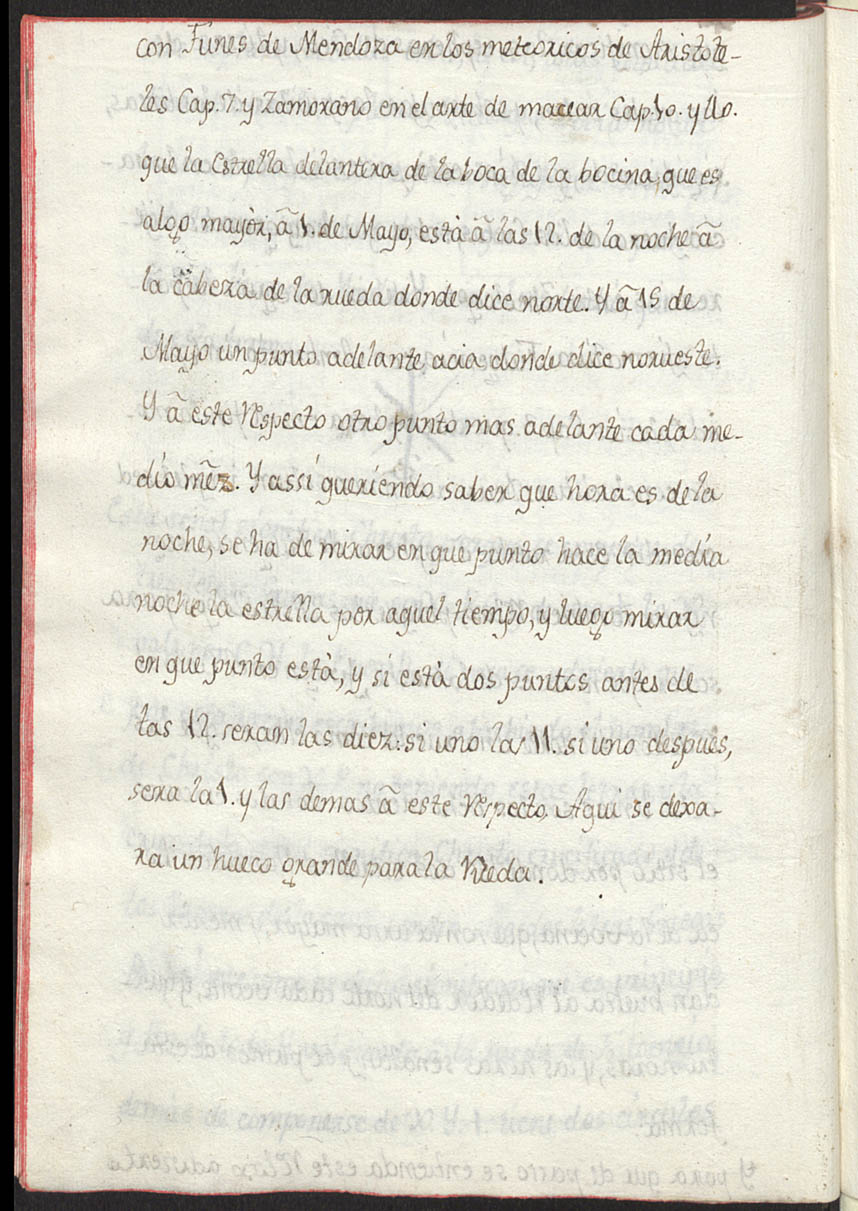 con Funes de Mendoza en los meteoricos de Aristote-
les Cap. 7. y Zamorano en el arte de marear Cap. 30. y 40.
que la estrella delantera de la boca de la bocina, que es
algo mayór, ã 1. de Mayo, està ã las 12. de la noche ã
la cabeza de la rueda donde dice norte. Y ã 15 de
Mayo un punto adelante acia donde dice norueste.
Y ã este respecto otro punto mas adelante cada me-
dio mez. Y assi queriendo saber que hora es de la
noche, se ha de mirar en que punto hace la media
noche la estrella por aquel tiempo, y luego mirar
en que punto està, y si està dos puntos antes de
las 12. seran las diez: si uno las 11. si uno despues,
sera la 1. y las demas ã este respecto. Aqui se dexa-
ra un hueco grande para la Rueda.